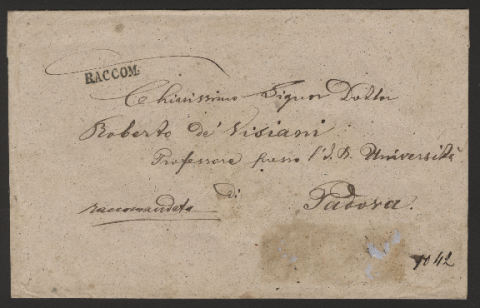 RACCOM:
Chiarissimo Signor Dottor
Roberto de' Visiani
Professore presso l'I. R. Università
di
Raccomandata
Padova.
1042